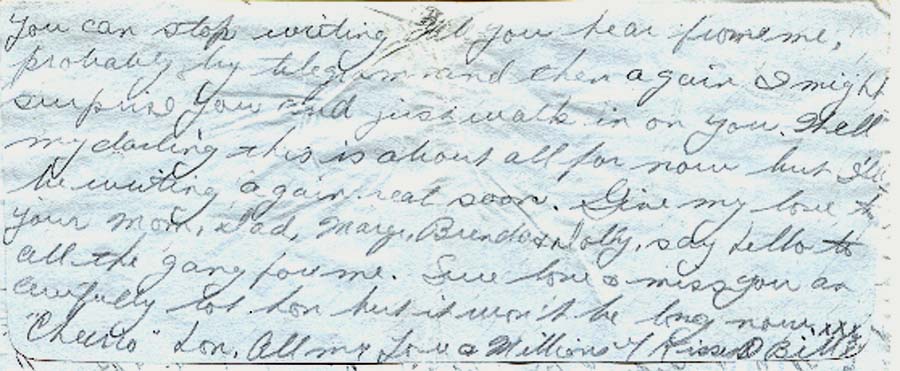 you can stop writing till you hear from me,
probably by telegram and then again I might
surprise you and just walk in on you. Well
my darling this is about all for now but I'll
be writing again real soon. Give my love to
your mom, Dad, Marge, Brenda & Dolly, say hello to
all the gang for me. Sure love & miss you an
awfully lot hon but it won't be long now xxx
"Cheerio" hon. All my Love & Millions of Kisses Bill